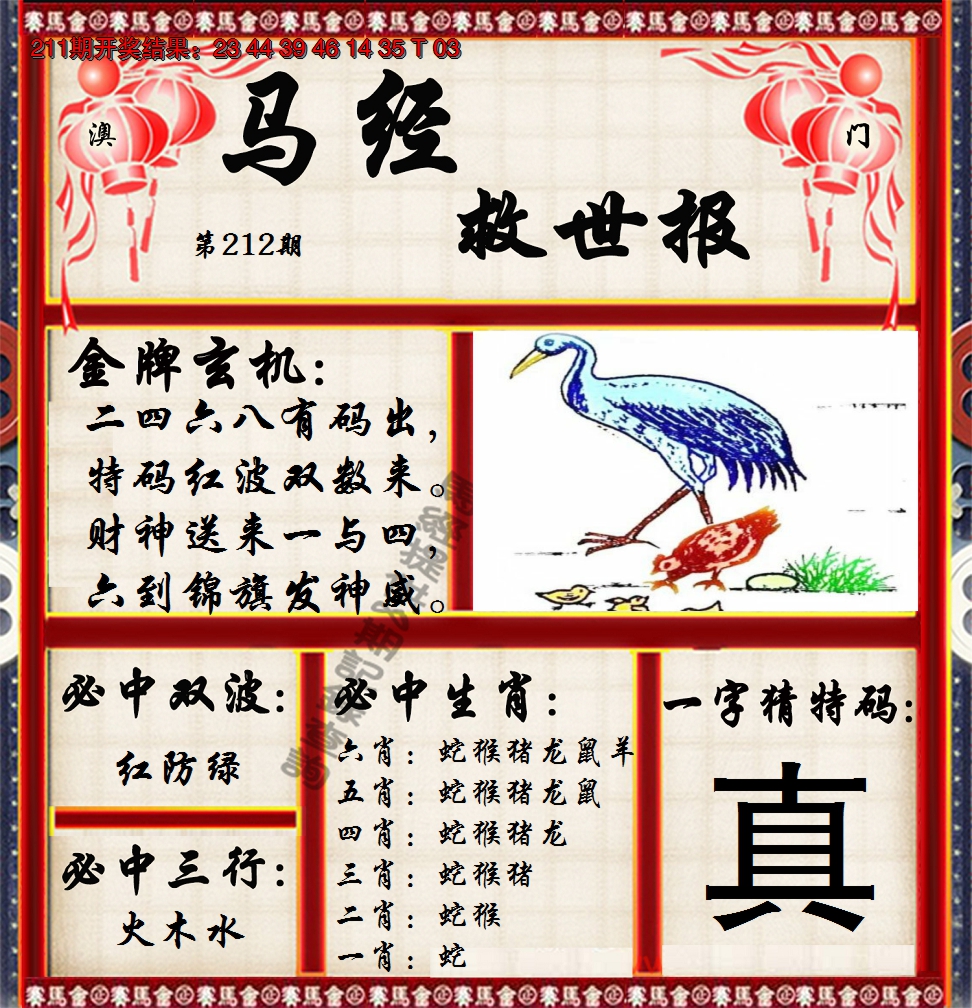 211期开奖结果：23 44 39 46 14 35 T 03
澳
门
马经
救世报
第212期
金牌玄机：
二四六八有码出，
特码红波双数来。
财神送来一与四，
六到锦旗发神威。
必中双波：
红防绿
必中三行：
火木水
必中生肖：
六肖：蛇猴猪龙鼠羊
五肖：蛇猴猪龙鼠
四肖：蛇猴猪龙
三肖：蛇猴猪
二肖：蛇猴
一肖：蛇
一字猜特码：
真